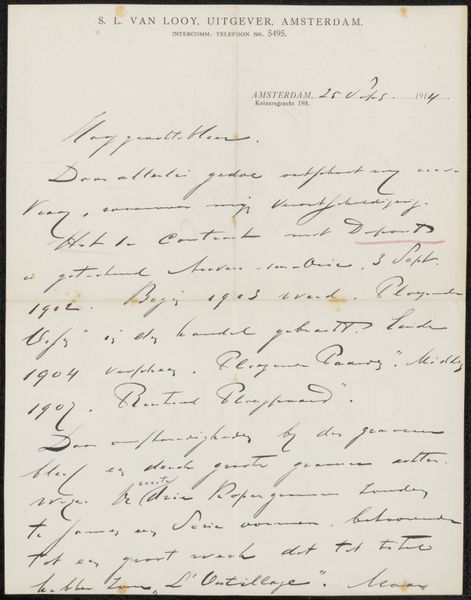 S. L. VAN LOOY, UITGEVER, AMSTERDAM.
INTERCOMM. TELEFOON No. 5495.
AMSTERDAM, 25 1914
Keizersgracht 198.
Hooggeachte Heer.
Door allerlei gedoe ontschoot mij
waarvoor mijn verontschuldiging.
Het 1e Contract met Dupont
is geteekend Auvers-sur-Oise, 3 Sept.
1902. Begin 1903 werd Ploegende
in den handel gebracht. Einde
1904 verscheen Ploegende Paarden". Midden
1907. Rustend Ploegpaard".
Door omstandigheden bij den graveur
bleef een derde groote gravure achter-
wege. De eerste drie Kopergravuren zouden
te samen een Serie vormen, behoorende
tot een groot werk dat tot titel
hebben zou „L'Outillage". Maar